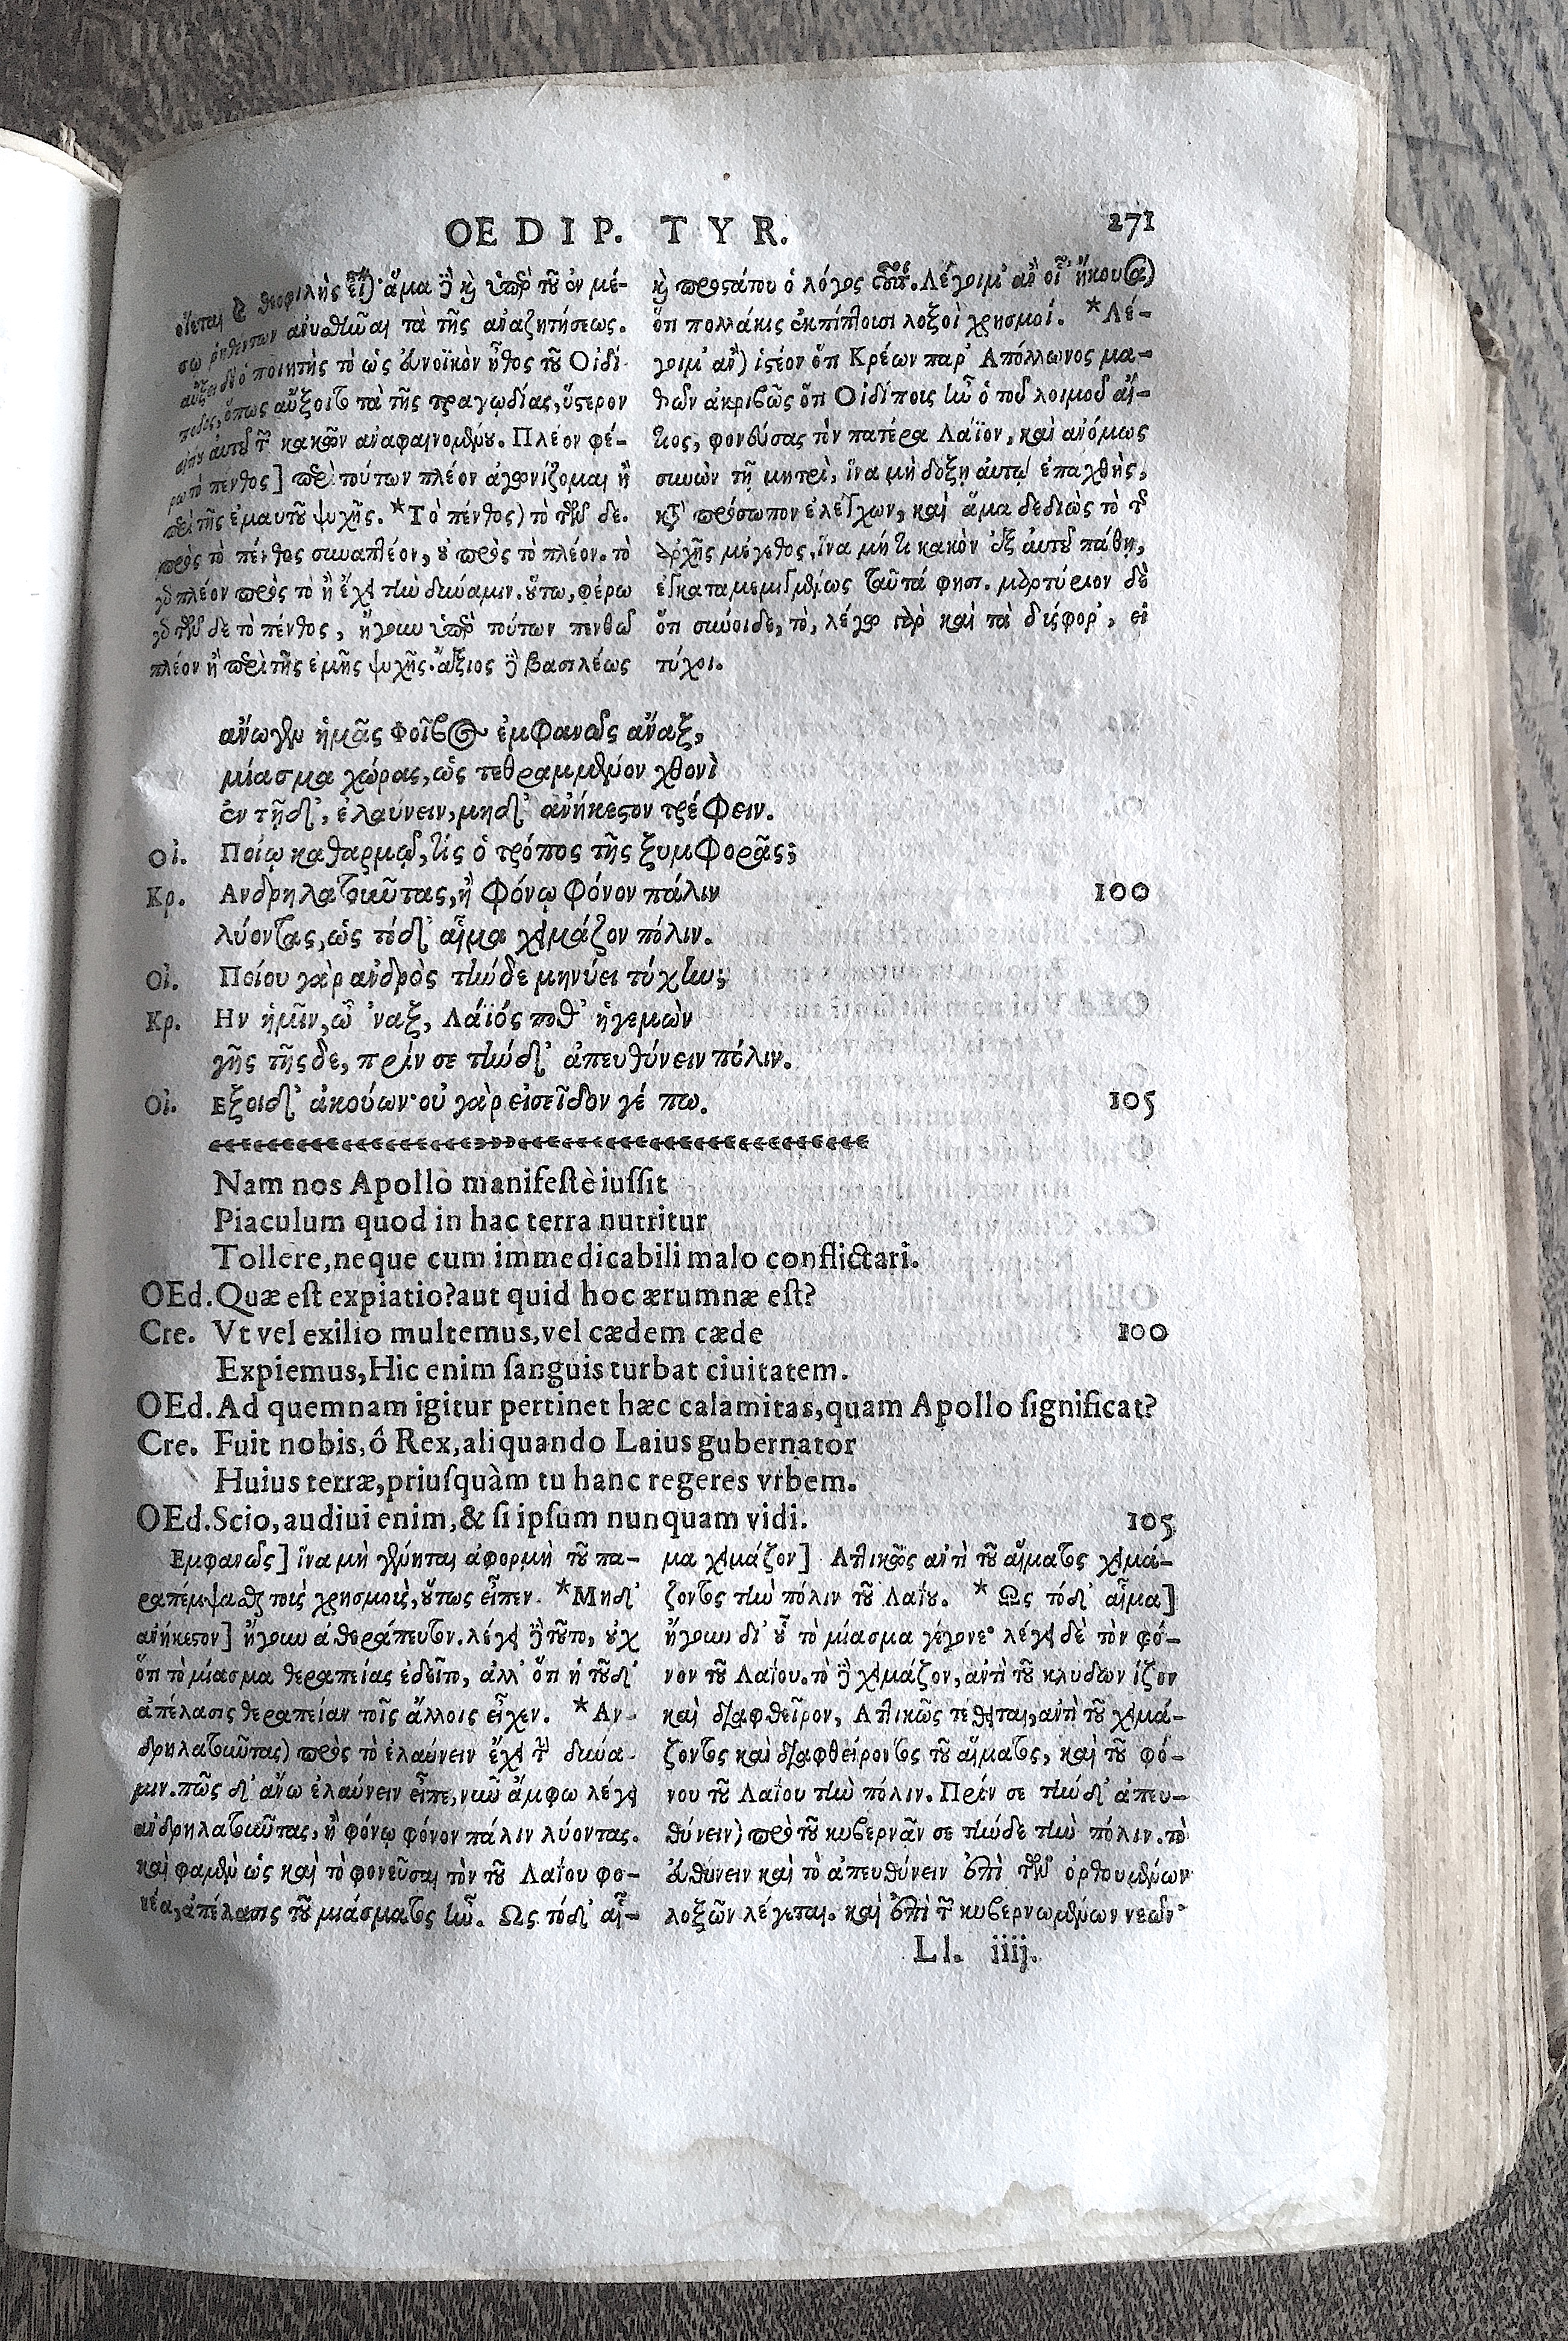 OEDIP. TYR. 271
οἴεται θεοφιλὴς εἶ) ἅμα ἢ καὶ ὑπὲρ τοῦ ἐν μέ-
σῳ ῥηθέντων ἀναθεῖναι τὰ τῆς ἀναζητήσεως.
αὔξει δὲ ὁ ποιητὴς τὸ ὡς εὐνοϊκὸν ἦθος τοῦ Οἰδί-
ποδος, ὅπως αὔξοιτο τὰ τῆς τραγῳδίας, ὕστερον
αὐτοῦ τῶν κακῶν ἀναφαινομένου. Πλέον φέ-
ρω τὸ πένθος] περὶ τούτων πλέον ἀγωνίζομαι ἢ
περὶ τῆς ἐμαυτοῦ ψυχῆς. *Τὸ πένθος) τὸ τῶν δε.
πρὸς τὸ πένθος συναπτέον, οὐ πρὸς τὸ πλέον. τὸ
γὸ πλέον πρὸς τὸ ἢ ἔχει τὴν δύναμιν. οὕτω, φέρω
γὸ τῶν δε τὸ πένθος, ἤγουν ὑπὲρ τούτων πενθῶ
πλέον ἢ περὶ τῆς ἐμῆς ψυχῆς. ἄξιος δὲ βασιλέως
καὶ προστάτου ὁ λόγος οὗτος. Λέγοιμ' ἂν οἷ' ἤκουσα)
ὅτι πολλάκις ἐκπίπτουσι λοξοὶ χρησμοί. *Λέ-
γοιμ' ἂν) ἰστέον ὅτι Κρέων παρ' Απόλλωνος μα-
θὼν ἀκριβῶς ὅτι Οἰδίποις ἦν ὁ τοῦ λοιμοῦ αἴ-
τιος, φονεύσας τὸν πατέρα Λάϊον, καὶ ἀνόμως
συνὼν τῇ μητρὶ, ἵνα μὴ δόξῃ αὐτῷ ἐπαχθὴς,
κατὰ πρόσωπον ἐλέγχων, καὶ ἅμα δεδιὼς τὸ τῆς
ἀρχῆς μέγεθος, ἵνα μή τι κακὸν ἐξ αὐτοῦ πάθῃ,
ἐγκαταμεμιγμένως ταῦτά φησι. μαρτύριον δὲ
ὅτι σύνοιδε, τὸ, λέγω γὰρ καὶ τὰ δύσφορ', εἰ
τύχοι.
ἄνωγεν ἡμᾶς Φοῖβος ἐμφανῶς ἄναξ,
μίασμα χώρας, ὡς τεθραμμένον χθονὶ
ἐν τῇδ', ἐλαύνειν, μηδ' ἀνήκεστον τρέφειν.
Οἰ. Ποίῳ καθαρμῷ, τίς ὁ τρόπος τῆς ξυμφορᾶς;
Κρ. Ανδρηλατοῦντας, ἢ φόνῳ φόνον πάλιν 100
λύοντας, ὡς τόδ' αἷμα χειμάζον πόλιν.
Οἰ. Ποίου γὰρ ἀνδρὸς τήνδε μηνύει τύχην;
Κρ. Ην ἡμῖν, ὦ 'ναξ, Λάϊός ποθ' ἡγεμὼν
γῆς τῆςδε, πρὶν σε τήνδ' ἀπευθύνειν πόλιν.
Οἰ. Εξοιδ' ἀκούων· οὐ γὰρ εἰσεῖδον γέ πω. 105
Nam nos Apollo manifestè iussit
Piaculum quod in hac terra nutritur
Tollere, neque cum immedicabili malo conflictari.
OEd. Quæ est expiatio? aut quid hoc ærumnæ est?
Cre. Vt vel exilio multemus, vel cædem cæde 100
Expiemus, Hic enim sanguis turbat ciuitatem.
OEd. Ad quemnam igitur pertinet hæc calamitas, quam Apollo significat?
Cre. Fuit nobis, ô Rex, aliquando Laius gubernator
Huius terræ, priusquàm tu hanc regeres vrbem.
OEd. Scio, audiui enim, & si ipsum nunquam vidi. 105
Εμφανῶς] ἵνα μὴ γένηται ἀφορμὴ τοῦ πα-
ραπέμψασθαι τοῖς χρησμοῖς, οὕτως εἶπεν. *Μηδ'
ἀνήκεστον] ἤγουν ἀθεράπευτον. λέγει δὲ τοῦτο, οὐχ
ὅτι τὸ μίασμα θεραπείας ἐδεῖτο, ἀλλ' ὅτι ἡ τοῦδ'
ἀπέλασις θεραπείαν τοῖς ἄλλοις εἶχεν. *Αν-
δρηλατοῦντας) πρὸς τὸ ἐλαύνειν ἔχει τὴν δύνα-
μιν. πῶς δ' ἄνω ἐλαύνειν εἶπε, νῦν ἄμφω λέγει
ἀνδρηλατοῦντας, ἢ φόνῳ φόνον πάλιν λύοντας.
καὶ φαμὲν ὡς καὶ τὸ φονεῦσαι τὸν τοῦ Λαΐου φο-
νέα, ἀπέλασις τοῦ μιάσματος ἦν. Ως τόδ' αἷ-
μα χειμάζον] Αττικῶς ἀντὶ τοῦ αἵματος χειμά-
ζοντος τὴν πόλιν τοῦ Λαΐου. * Ως τόδ' αἷμα]
ἤγουν δι' οὗ τὸ μίασμα γέγονε· λέγει δὲ τὸν φό-
νον τοῦ Λαΐου. τὸ δὲ χειμάζον, ἀντὶ τοῦ κλυδωνίζον
καὶ διαφθεῖρον, Αττικῶς τέθειται, ἀντὶ τοῦ χειμά-
ζοντος καὶ διαφθείροντος τοῦ αἵματος, καὶ τοῦ φό-
νου τοῦ Λαΐου τὴν πόλιν. Πρίν σε τήνδ' ἀπευ-
θύνειν) πρὸ τοῦ κυβερνᾶν σε τήνδε τὴν πόλιν. τὸ
εὐθύνειν καὶ τὸ ἀπευθύνειν ἐπὶ τῶν ὀρθουμένων
λοξῶν λέγεται. καὶ ἐπὶ τῶν κυβερνωμένων νεῶν·
Ll. iiij.